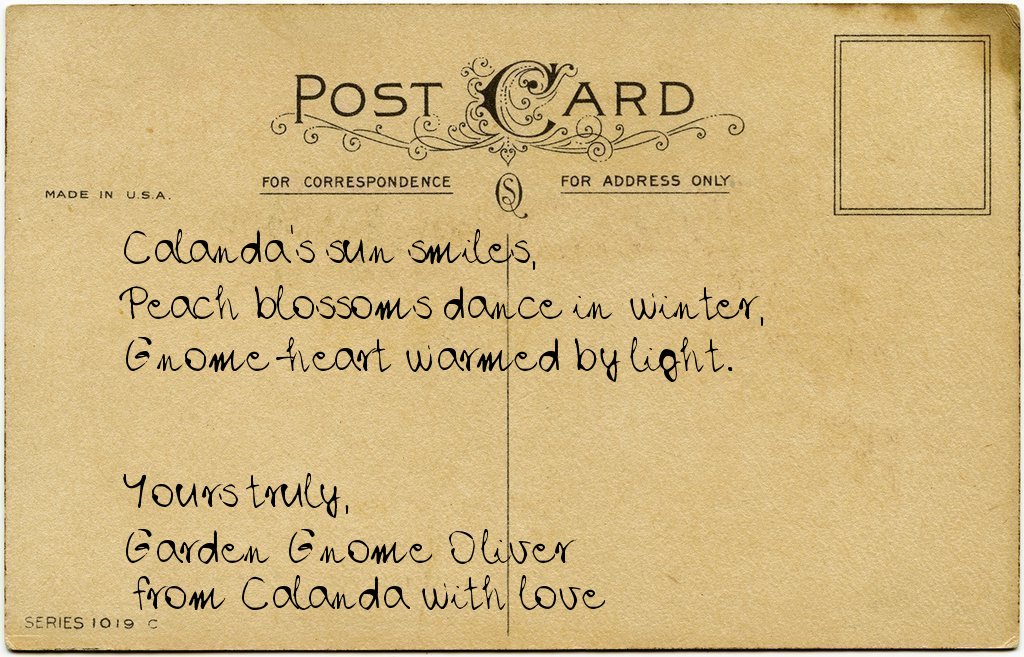 POST CARD
FOR CORRESPONDENCE
FOR ADDRESS ONLY
MADE IN U.S.A.
Calanda's sun smiles,
Peach blossoms dance in winter,
Gnome heart warmed by light.
Yours truly,
Garden Gnome Oliver
from Calanda with love
SERIES 1019 C